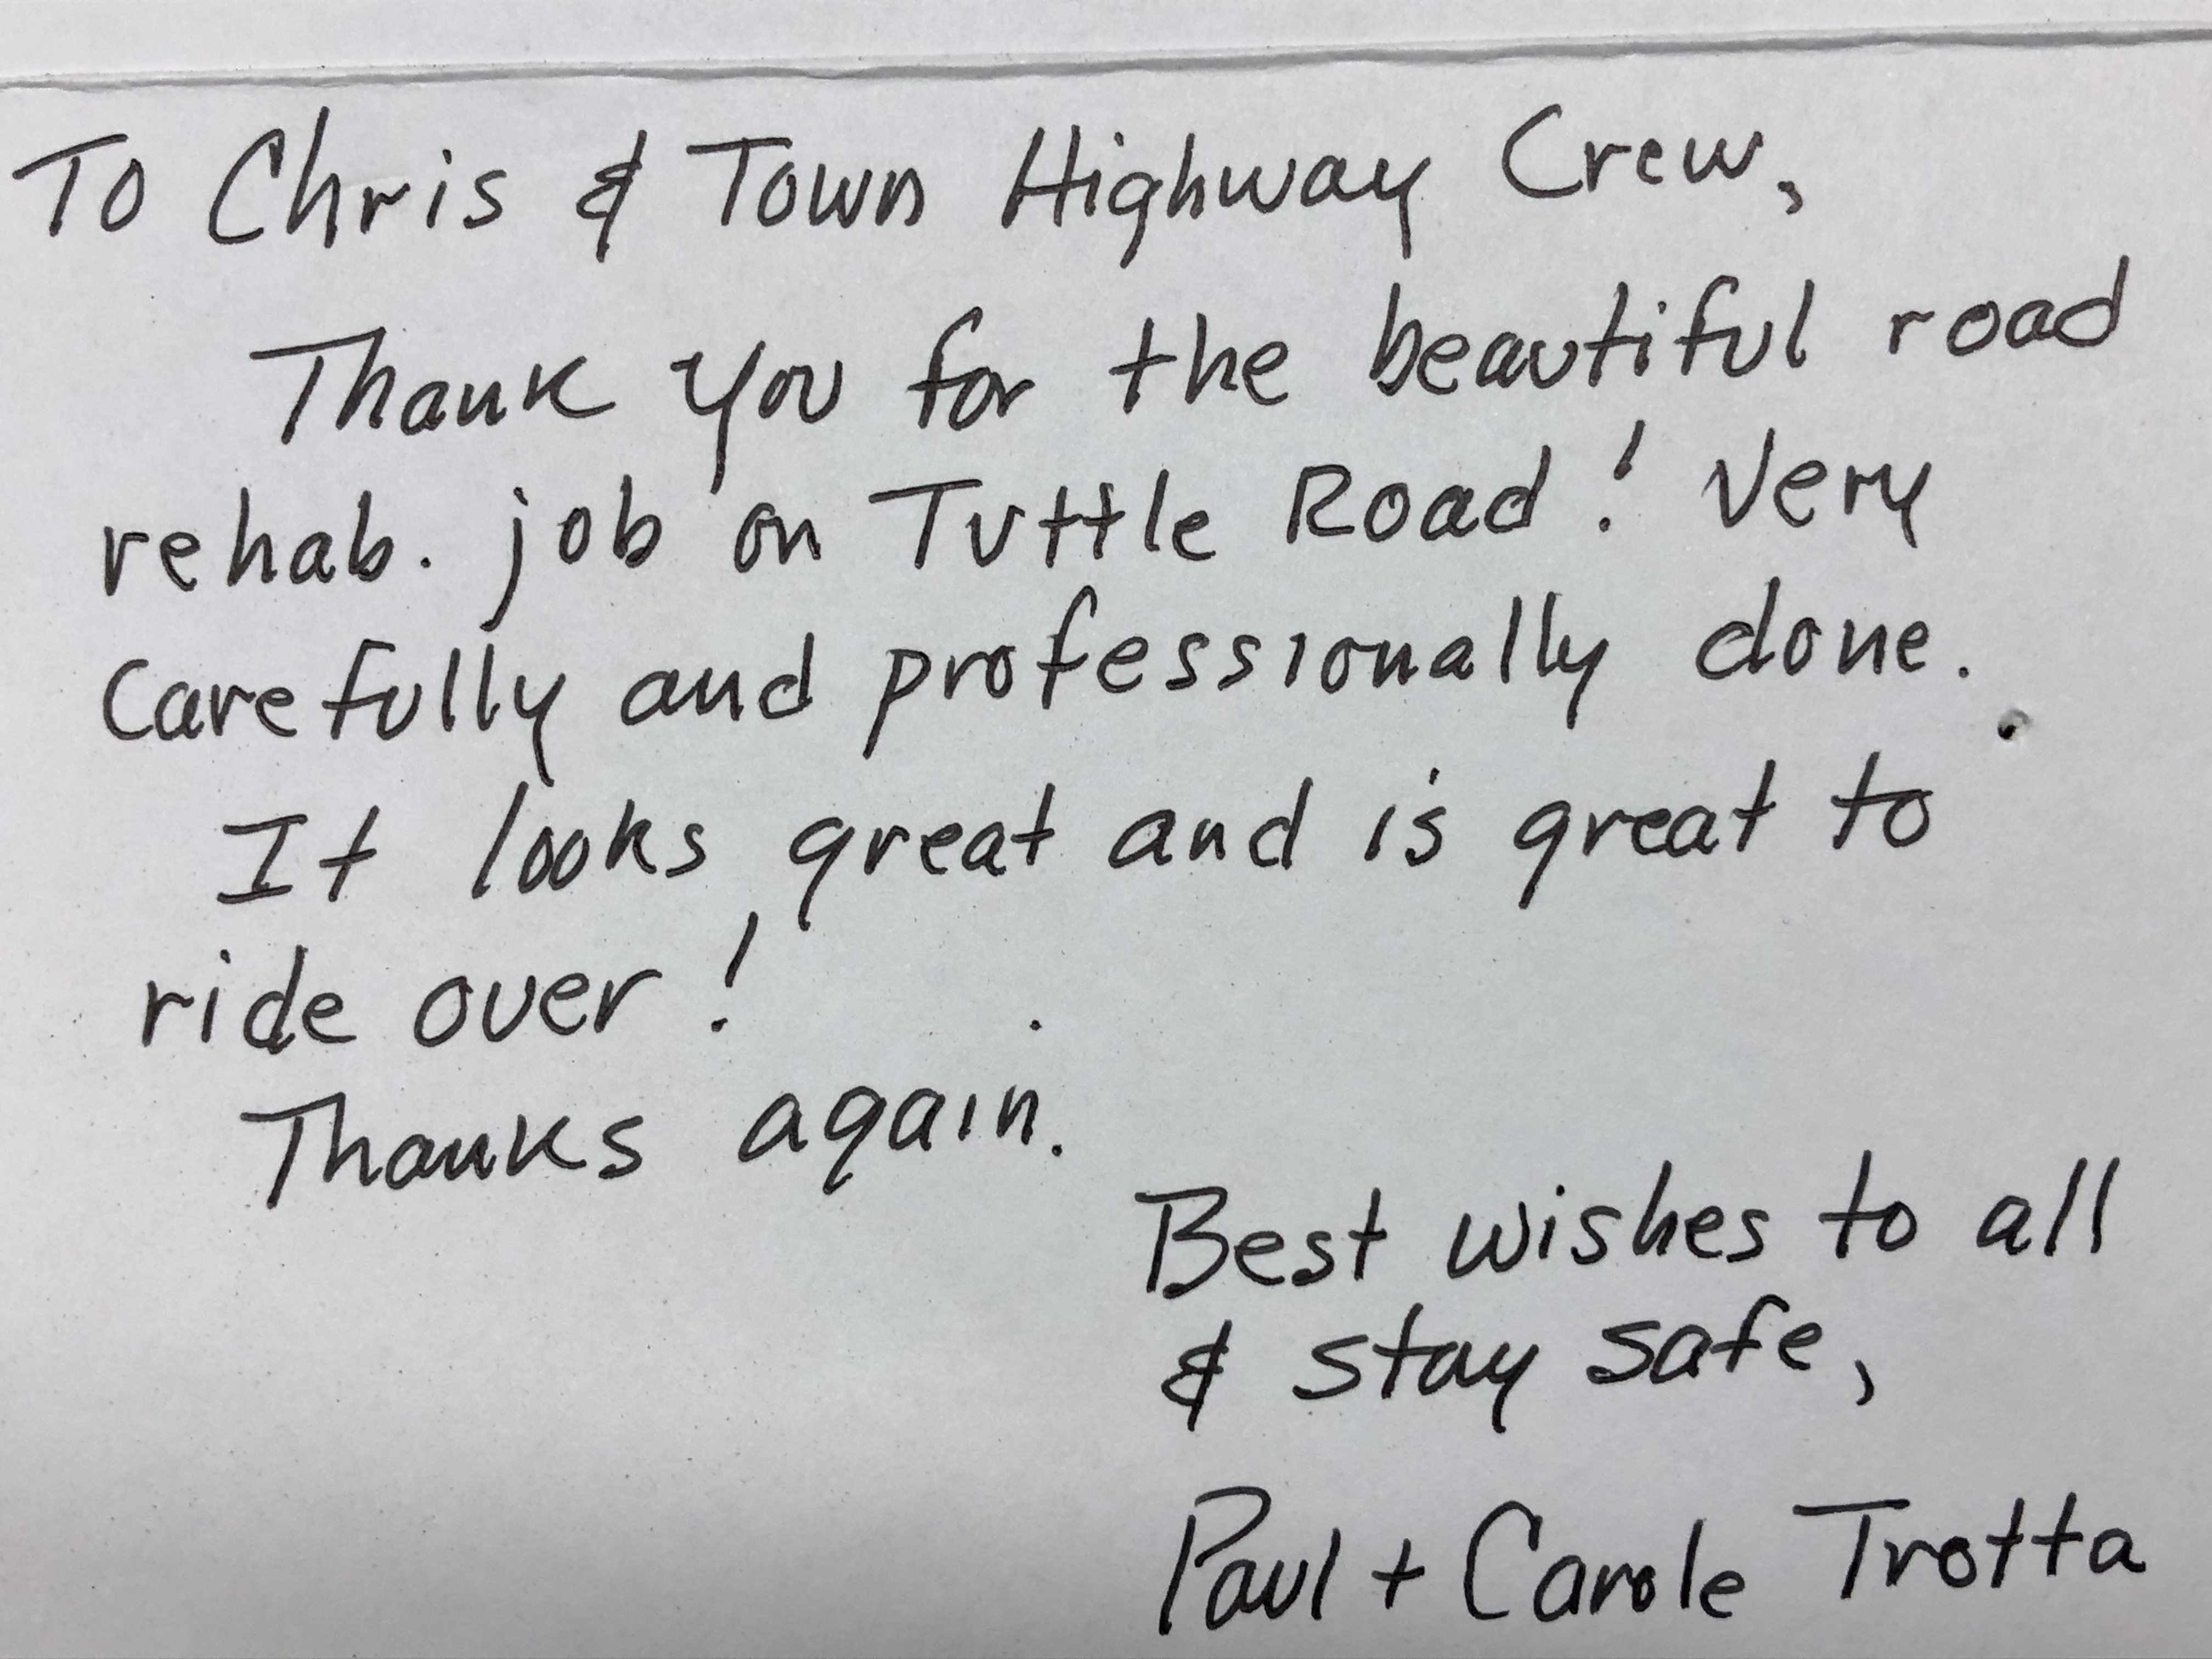 To Chris & Town Highway Crew,
Thank you for the beautiful road
rehab. job on Tuttle Road! Very
Carefully and professionally done.
It looks great and is great to
ride over!
Thanks again.
Best wishes to all
& stay safe,
Paul + Carole Trotta